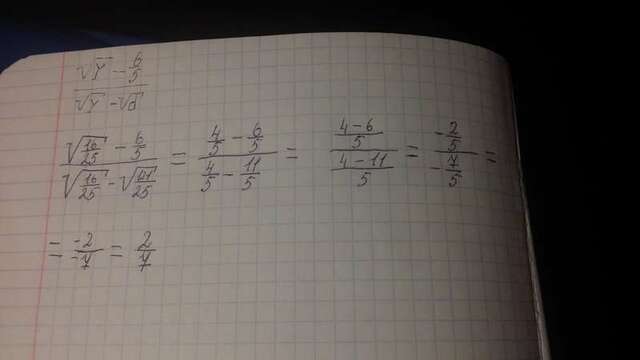 (√γ - 6/5)/(√γ - √d)
(√(16/25) - 6/5)/(√(16/25) - √(121/25)) = (4/5 - 6/5)/(4/5 - 11/5) = ((4-6)/5)/((4-11)/5) = (-2/5)/(-7/5) =
= -2/-7 = 2/7